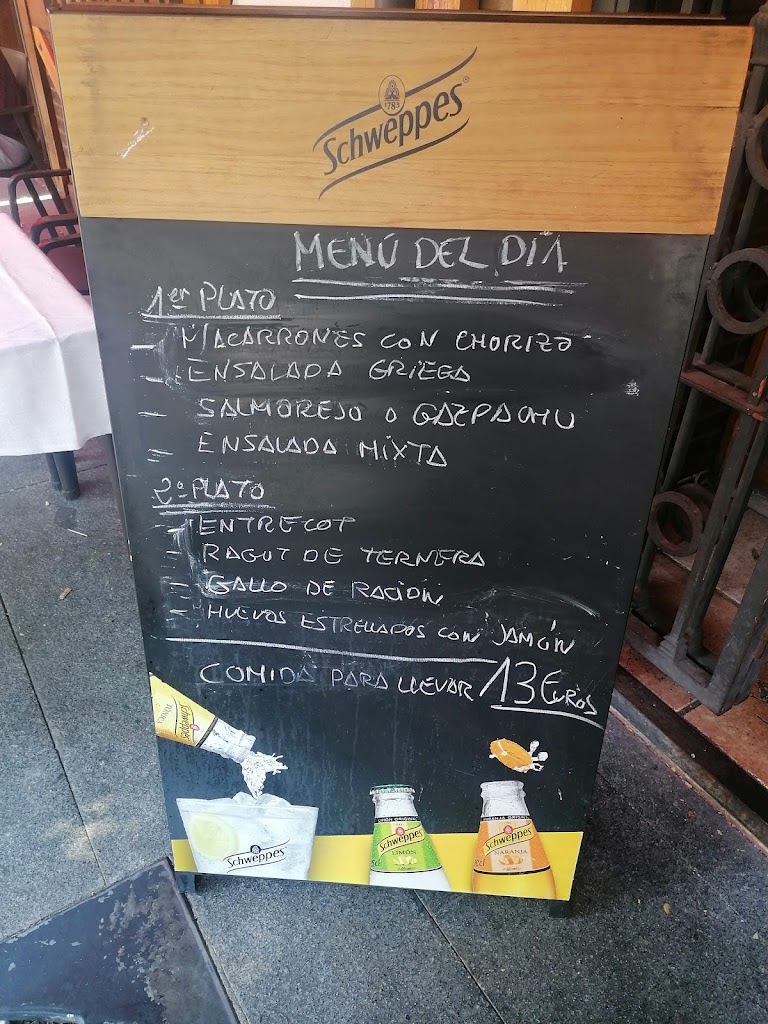 1783
Schweppes
MENÚ DEL DIA
1er PLATO
- MACARRONES CON CHORIZO
- ENSALADA GRIEGA
- SALMOREJO O GAZPACHU
- ENSALADA MIXTA
2º PLATO
- ENTRECOT
- RAGUT DE TERNERA
- GALLO DE RACION
- HUEVOS ESTRELLADOS CON JAMÓN
COMIDA PARA LLEVAR 13 Euros
Schweppes
TÓNICA
Schweppes
LIMÓN ORIGINAL
Schweppes
LIMÓN
NARANJA ORIGINAL
Schweppes
NARANJA